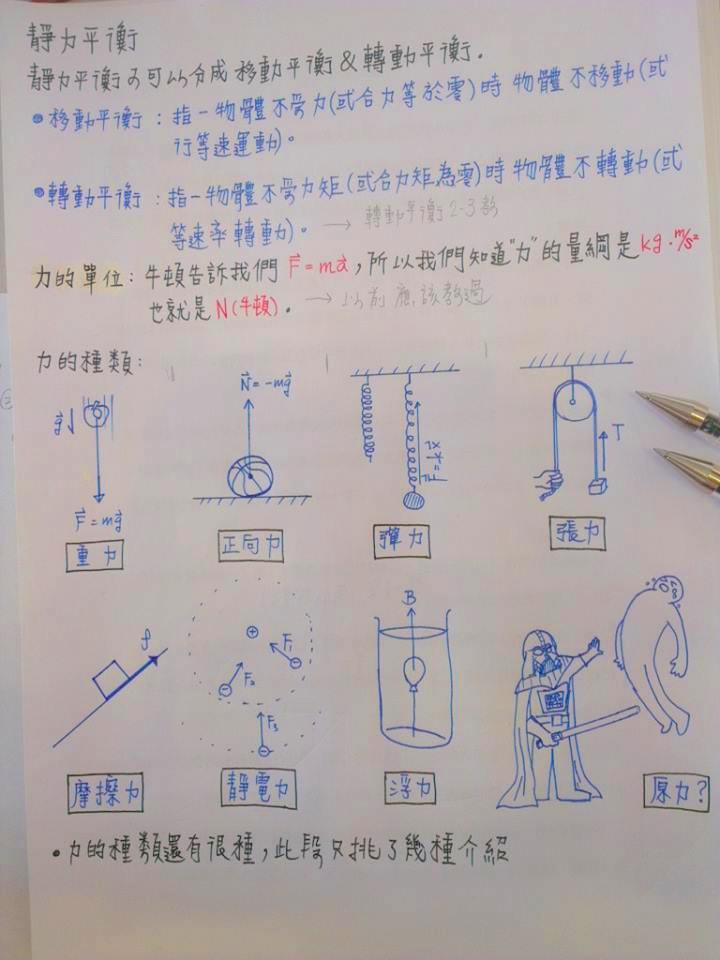 靜力平衡
靜力平衡又可以分成移動平衡&轉動平衡.
• 移動平衡：指一物體不受力(或合力等於零)時物體不移動(或
行等速運動)。
• 轉動平衡：指一物體不受力矩(或合力矩為零)時物體不轉動(或
等速率轉動)。 → 轉動平衡2-3教
力的單位：牛頓告訴我們 F⃗=ma⃗, 所以我們知道"力"的量綱是 kg·m/s²
也就是 N(牛頓). → 以前應該教過
力的種類:
g⃗↓ N⃗=-mg⃗ F⃗=-kx⃗ T
F⃗=mg⃗
重力 正向力 彈力 張力
f ⊕ F₁ ⊖ F₂ ⊖ F₃ ⊖ B
摩擦力 靜電力 浮力 原力?
• 力的種類還有很種，此段只挑了幾種介紹